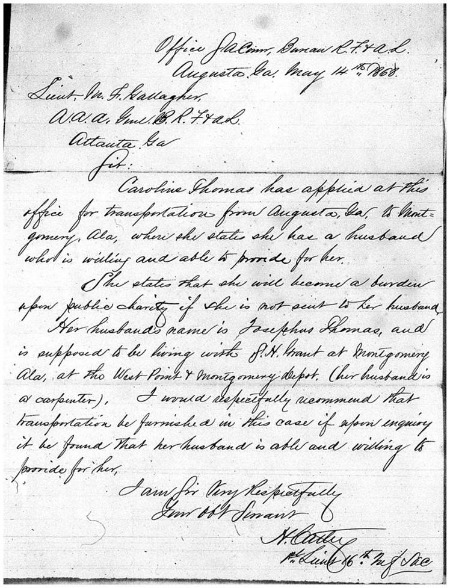 Office S A Com, Bureau R. F. & A. L.
Augusta, Ga, May 14th 1868.
Lieut, M. F. Gallagher,
A. A. A. Genl. B. R. F & A L.
Atlanta, Ga
Sir:
Caroline Thomas has applied at this
office for transportation from Augusta, Ga, to Mont-
gomery, Ala, where she states she has a husband
who is willing and able to provide for her.
She states that she will become a burden
upon public charity if she is not sent to her husband,
Her husbands name is Josephus Thomas, and
is supposed to be living with J. H. Grant at Montgomery
Ala, at the West Point & Montgomery Depot. (her husband is
a carpenter). I would respectfully recommend that
transportation be furnished in this case if upon enquiry
it be found that her husband is able and willing to
provide for her,
I am Sir Very Respectfully
Your Obt Servant
1st Lieut 16th Inf